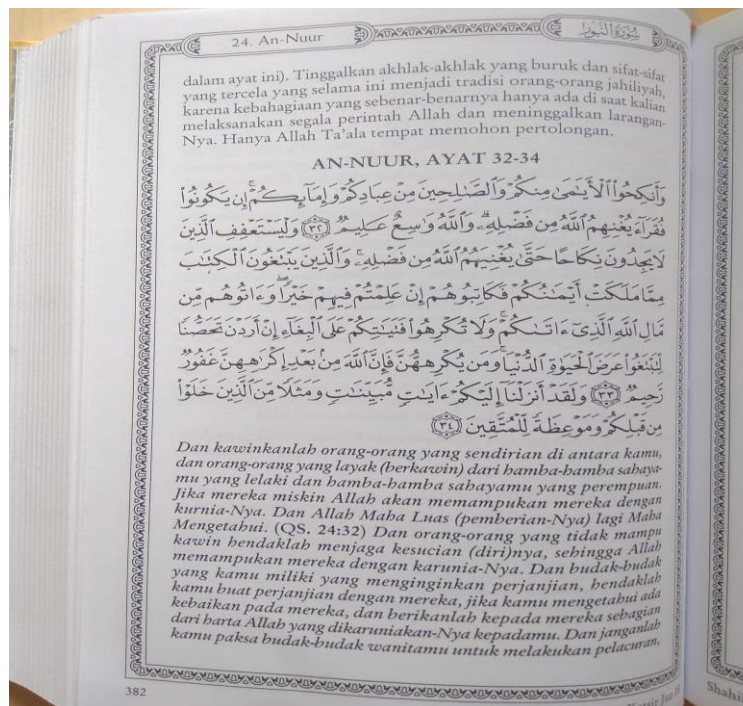 24. An-Nuur
سُورَةُ النُّورِ
dalam ayat ini). Tinggalkan akhlak-akhlak yang buruk dan sifat-sifat
yang tercela yang selama ini menjadi tradisi orang-orang jahiliyah,
karena kebahagiaan yang sebenar-benarnya hanya ada di saat kalian
melaksanakan segala perintah Allah dan meninggalkan larangan-
Nya. Hanya Allah Ta'ala tempat memohon pertolongan.
AN-NUUR, AYAT 32-34
وَأَنكِحُوا۟ ٱلْأَيَـٰمَىٰ مِنكُمْ وَٱلصَّـٰلِحِينَ مِنْ عِبَادِكُمْ وَإِمَآئِكُمْ ۚ إِن يَكُونُوا۟
فُقَرَآءَ يُغْنِهِمُ ٱللَّهُ مِن فَضْلِهِۦ ۗ وَٱللَّهُ وَٰسِعٌ عَلِيمٌ ﴿٣٢﴾ وَلْيَسْتَعْفِفِ ٱلَّذِينَ
لَا يَجِدُونَ نِكَاحًا حَتَّىٰ يُغْنِيَهُمُ ٱللَّهُ مِن فَضْلِهِۦ ۗ وَٱلَّذِينَ يَبْتَغُونَ ٱلْكِتَـٰبَ
مِمَّا مَلَكَتْ أَيْمَـٰنُكُمْ فَكَاتِبُوهُمْ إِنْ عَلِمْتُمْ فِيهِمْ خَيْرًا ۖ وَءَاتُوهُم مِّن
مَّالِ ٱللَّهِ ٱلَّذِىٓ ءَاتَىٰكُمْ ۚ وَلَا تُكْرِهُوا۟ فَتَيَـٰتِكُمْ عَلَى ٱلْبِغَآءِ إِنْ أَرَدْنَ تَحَصُّنًا
لِّتَبْتَغُوا۟ عَرَضَ ٱلْحَيَوٰةِ ٱلدُّنْيَا ۚ وَمَن يُكْرِههُّنَّ فَإِنَّ ٱللَّهَ مِنۢ بَعْدِ إِكْرَٰهِهِنَّ غَفُورٌ
رَّحِيمٌ ﴿٣٣﴾ وَلَقَدْ أَنزَلْنَآ إِلَيْكُمْ ءَايَـٰتٍ مُّبَيِّنَـٰتٍ وَمَثَلًا مِّنَ ٱلَّذِينَ خَلَوْا۟
مِن قَبْلِكُمْ وَمَوْعِظَةً لِّلْمُتَّقِينَ ﴿٣٤﴾
Dan kawinkanlah orang-orang yang sendirian di antara kamu,
dan orang-orang yang layak (berkawin) dari hamba-hamba sahaya-
mu yang lelaki dan hamba-hamba sahayamu yang perempuan.
Jika mereka miskin Allah akan memampukan mereka dengan
kurnia-Nya. Dan Allah Maha Luas (pemberian-Nya) lagi Maha
Mengetahui. (QS. 24:32) Dan orang-orang yang tidak mampu
kawin hendaklah menjaga kesucian (diri)nya, sehingga Allah
memampukan mereka dengan karunia-Nya. Dan budak-budak
yang kamu miliki yang menginginkan perjanjian, hendaklah
kamu buat perjanjian dengan mereka, jika kamu mengetahui ada
kebaikan pada mereka, dan berikanlah kepada mereka sebagian
dari harta Allah yang dikaruniakan-Nya kepadamu. Dan janganlah
kamu paksa budak-budak wanitamu untuk melakukan pelacuran,
382
Shahi